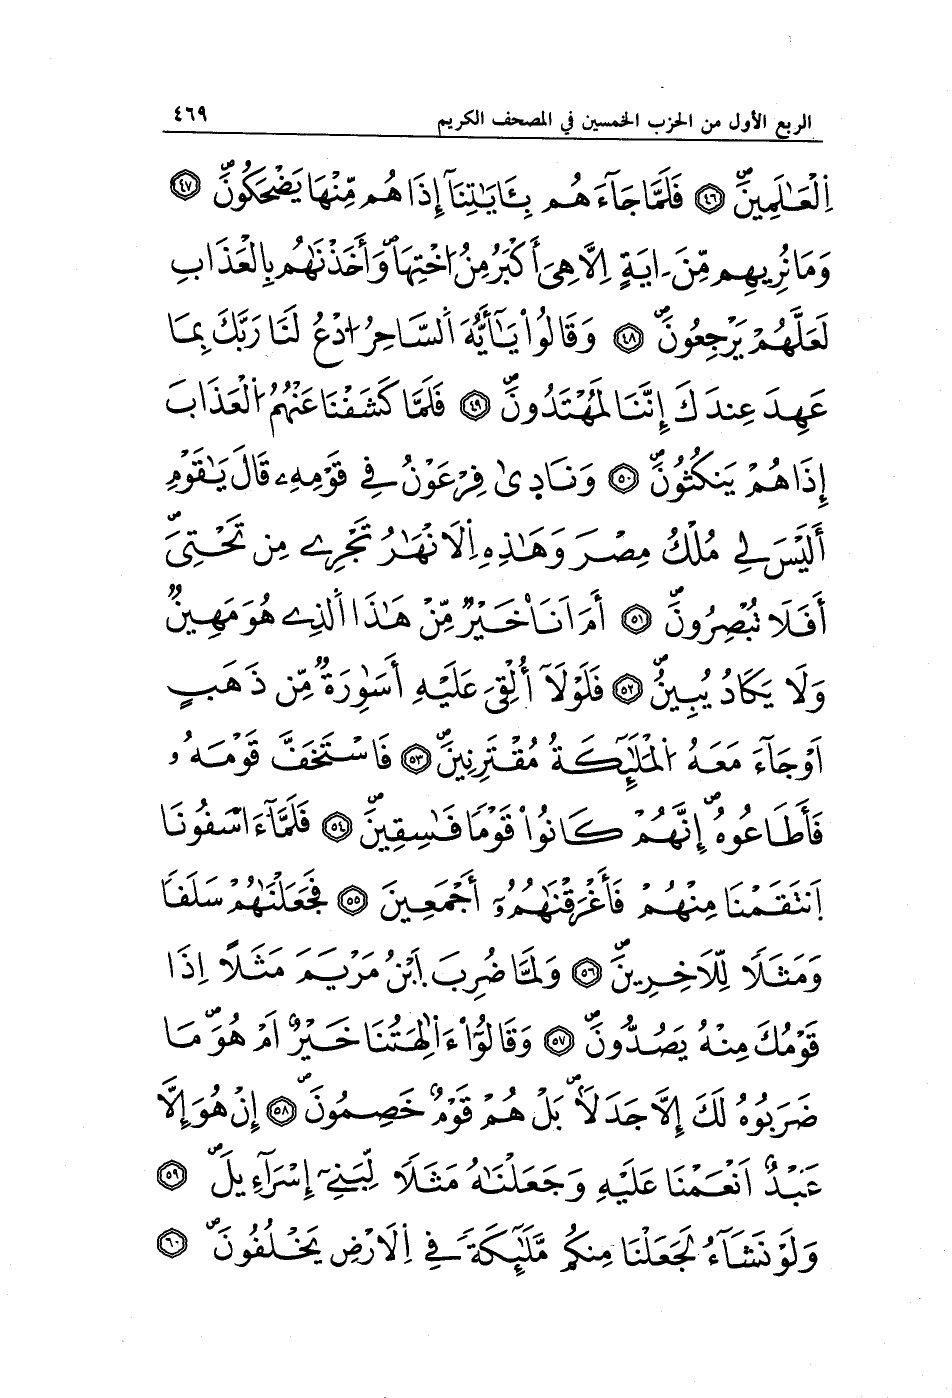 الربع الأول من الحزب الخمسين في المصحف الكريم ٤٦٩
اِ۬لْعَٰلَمِينَۖ ٤٦ فَلَمَّا جَآءَهُم بِـَٔايَٰتِنَآ إِذَا هُم مِّنْهَا يَضْحَكُونَۖ ٤٧
وَمَا نُرِيهِم مِّنَ ـ ايَةٍ اِلَّا هِيَ أَكْبَرُ مِنُ ا۟خْتِهَاۖ وَأَخَذْنَٰهُم بِالْعَذَابِ
لَعَلَّهُمْ يَرْجِعُونَۖ ٤٨ وَقَالُواْ يَٰٓأَيُّهَ اَ۬لسَّاحِرُ اُ۟دْعُ لَنَا رَبَّكَ بِمَا
عَهِدَ عِندَكَ إِنَّنَا لَمُهْتَدُونَۖ ٤٩ فَلَمَّا كَشَفْنَا عَنْهُمُ اُ۬لْعَذَابَ
إِذَا هُمْ يَنكُثُونَۖ ٥٠ وَنَادِىٰ فِرْعَوْنُ فِے قَوْمِهِۦ قَالَ يَٰقَوْمِ
أَلَيْسَ لِے مُلْكُ مِصْرَ وَهَٰذِهِ اِ۬لَانْهَٰرُ تَجْرِے مِن تَحْتِيَۖ
أَفَلَا تُبْصِرُونَۖ ٥١ أَمَ اَنَا۠ خَيْرٌ مِّنْ هَٰذَا اَ۬لذِے هُوَ مَهِينٌ
وَلَا يَكَادُ يُبِينُۖ ٥٢ فَلَوْلَآ أُلْقِيَ عَلَيْهِ أَسَٰوِرَةٌ مِّن ذَهَبٍ
اَوْ جَآءَ مَعَهُ اُ۬لْمَلَٰٓئِكَةُ مُقْتَرِنِينَۖ ٥٣ فَاسْتَخَفَّ قَوْمَهُۥ
فَأَطَاعُوهُۖ إِنَّهُمْ كَانُواْ قَوْمًا فَٰسِقِينَۖ ٥٤ فَلَمَّآ ءَاسَفُونَا
اَ۪نتَقَمْنَا مِنْهُمْ فَأَغْرَقْنَٰهُمُۥٓ أَجْمَعِينَ ٥٥ فَجَعَلْنَٰهُمْ سَلَفًا
وَمَثَلًا لِّلَاخِرِينَۖ ٥٦ وَلَمَّا ضُرِبَ اَ۪بْنُ مَرْيَمَ مَثَلًا اِذَا
قَوْمُكَ مِنْهُ يَصُدُّونَۖ ٥٧ وَقَالُوٓاْ ءَا۬لِهَتُنَا خَيْرٌ اَمْ هُوَۖ مَا
ضَرَبُوهُ لَكَ إِلَّا جَدَلًاۖ بَلْ هُمْ قَوْمٌ خَصِمُونَۖ ٥٨ إِنْ هُوَ إِلَّا
عَبْدٌ اَنْعَمْنَا عَلَيْهِ وَجَعَلْنَٰهُ مَثَلًا لِّبَنِےٓ إِسْرَآءِيلَۖ ٥٩
وَلَوْ نَشَآءُ لَجَعَلْنَا مِنكُم مَّلَٰٓئِكَةً فِے اِ۬لَارْضِ يَخْلُفُونَۖ ٦٠